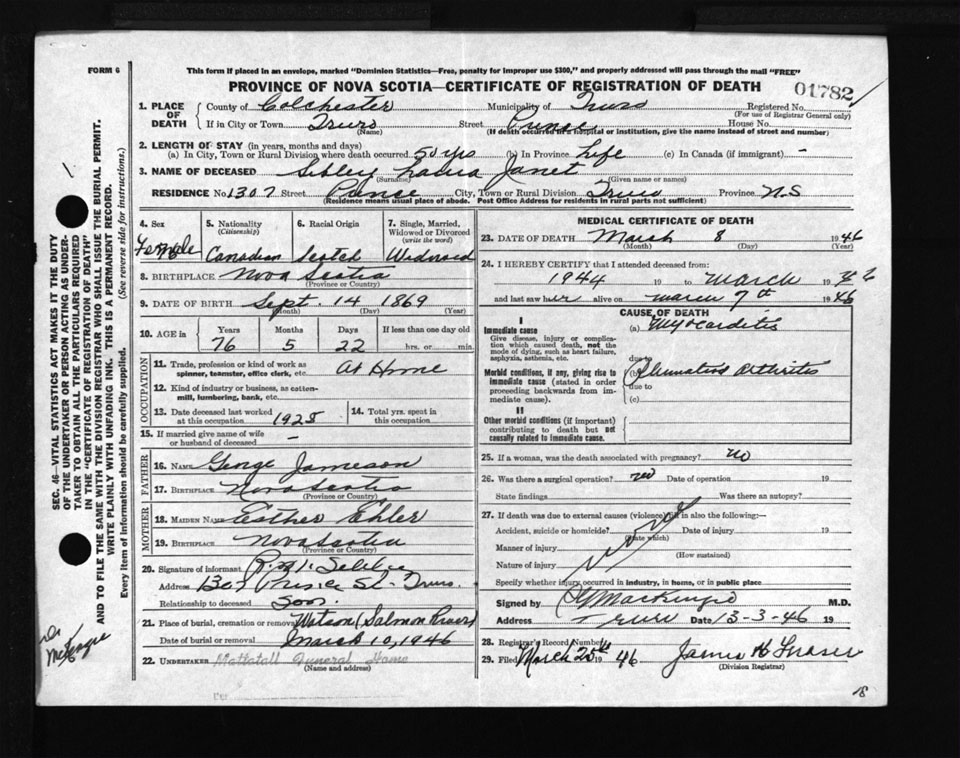 FORM 6
This form if placed in an envelope, marked "Dominion Statistics—Free, penalty for improper use $300," and properly addressed will pass through the mail "FREE"
PROVINCE OF NOVA SCOTIA—CERTIFICATE OF REGISTRATION OF DEATH
01782
1. PLACE OF DEATH County of Colchester Municipality of Truro Registered No.
(For use of Registrar General only)
If in City or Town Truro Street Prince House No.
(Name) (If death occurred in a hospital or institution, give the name instead of street and number)
2. LENGTH OF STAY (in years, months and days)
(a) In City, Town or Rural Division where death occurred 50 yrs (b) In Province Life (c) In Canada (if immigrant) -
3. NAME OF DECEASED Sibley Laura Janet
(Surname) (Given name or names)
RESIDENCE No 1307 Street Prince City, Town or Rural Division Truro Province N.S
(Residence means usual place of abode. Post Office Address for residents in rural parts not sufficient)
4. Sex 5. Nationality 6. Racial Origin 7. Single, Married, Widowed or Divorced
(Citizenship) (write the word)
Female Canadian Scotch Widowed
8. BIRTHPLACE Nova Scotia
(Province or Country)
9. DATE OF BIRTH Sept. 14 1869
(Month) (Day) (Year)
10. AGE in Years Months Days If less than one day old
76 5 22 hrs. or min.
OCCUPATION
11. Trade, profession or kind of work as spinner, teamster, office clerk, etc. At Home
12. Kind of industry or business, as cotton-mill, lumbering, bank, etc.
13. Date deceased last worked at this occupation 1925 14. Total yrs. spent in this occupation
15. If married give name of wife or husband of deceased -
FATHER
16. NAME George Jameson
17. BIRTHPLACE Nova Scotia
(Province or Country)
MOTHER
18. MAIDEN NAME Esther Ehler
19. BIRTHPLACE Nova Scotia
(Province or Country)
20. Signature of informant
Address 1307 Prince St. Truro.
Relationship to deceased Son.
21. Place of burial, cremation or removal Watson (Salmon River)
Date of burial or removal March 10, 1946
22. UNDERTAKER Mattatall Funeral Home
(Name and address)
MEDICAL CERTIFICATE OF DEATH
23. DATE OF DEATH March 8 1946
(Month) (Day) (Year)
24. I HEREBY CERTIFY that I attended deceased from:
1944 19 to March 1946
and last saw her alive on March 7th 1946
CAUSE OF DEATH
I
Immediate cause (a) Myocarditis
Give disease, injury or complication which caused death, not the mode of dying, such as heart failure, asphyxia, asthenia, etc.
due to
Morbid conditions, if any, giving rise to immediate cause (stated in order proceeding backwards from immediate cause). (b) Rheumatoid Arthritis
due to
(c)
II
Other morbid conditions (if important) contributing to death but not causally related to immediate cause.
25. If a woman, was the death associated with pregnancy? no
26. Was there a surgical operation? no Date of operation 19
State findings Was there an autopsy?
27. If death was due to external causes (violence) fill in also the following:—
Accident, suicide or homicide? Date of injury 19
(State which)
Manner of injury
(How sustained)
Nature of injury
Specify whether injury occurred in industry, in home, or in public place
Signed by MacKenzie M.D.
Address Truro Date 13-3-46 19
28. Registrar's Record Number
29. Filed March 20th 1946 James H Fraser
(Division Registrar)
18
SEC. 46—VITAL STATISTICS ACT MAKES IT THE DUTY
OF THE UNDERTAKER OR PERSON ACTING AS UNDER-
TAKER TO OBTAIN ALL THE PARTICULARS REQUIRED
IN THE "CERTIFICATE OF REGISTRATION OF DEATH"
AND TO FILE THE SAME WITH THE DIVISION REGISTRAR WHO SHALL ISSUE THE BURIAL PERMIT.
WRITE PLAINLY WITH UNFADING INK. THIS IS A PERMANENT RECORD.
Every item of information should be carefully supplied. (See reverse side for instructions.)